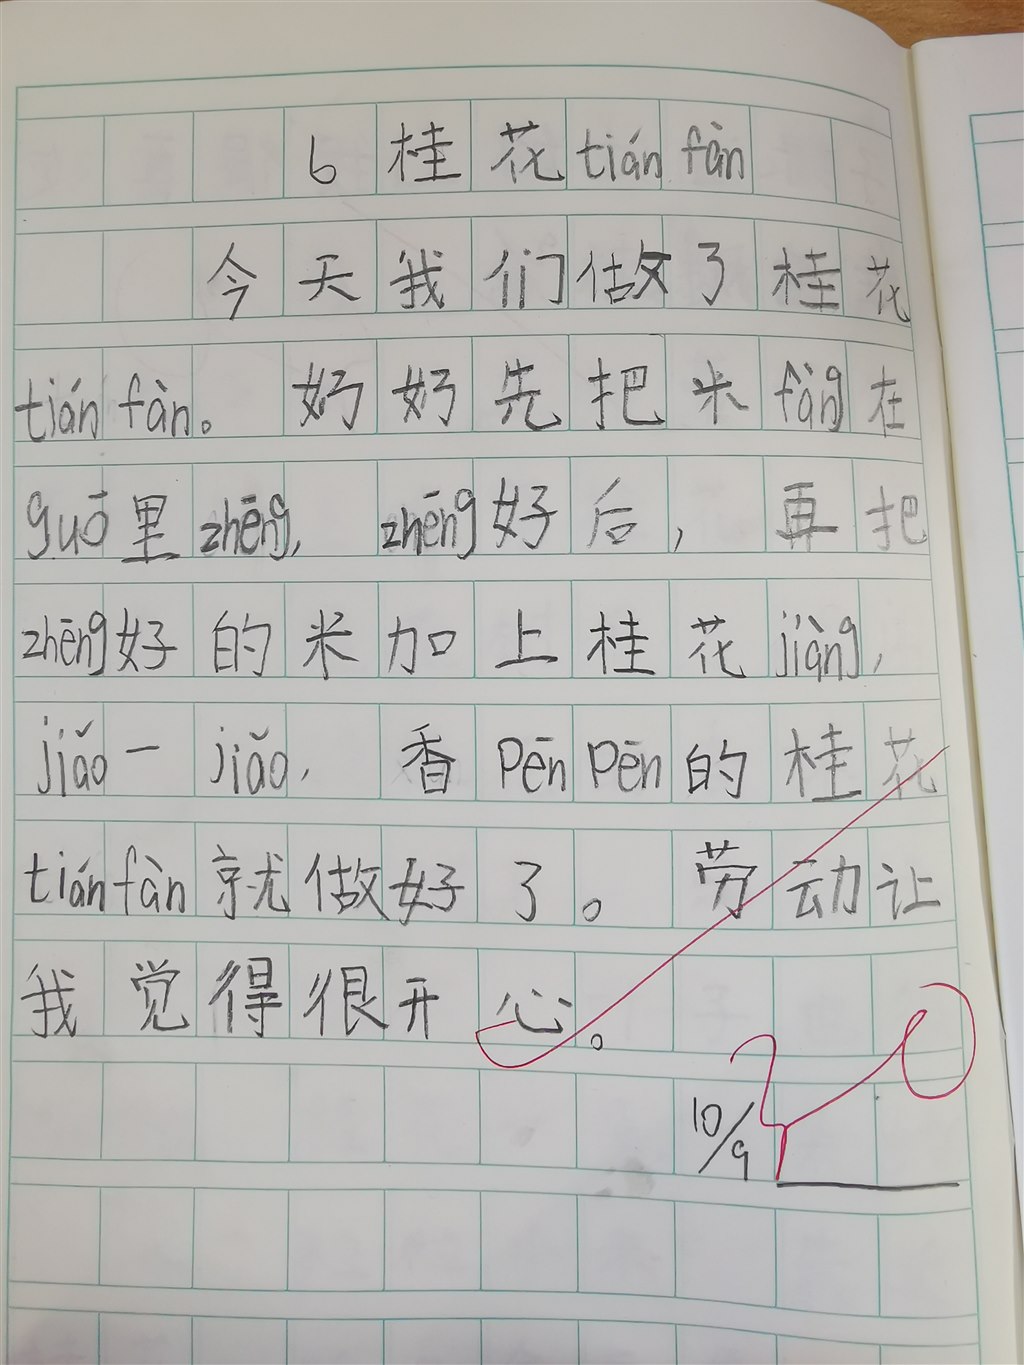 6 桂花tián fàn
今天我们做了桂花
tián fàn。好好先把米fàng在
guō里zhēng，zhēng好后，再把
zhēng好的米加上桂花jiàng，
jiǎo一jiǎo，香Pēn Pēn的桂花
tiánfàn就做好了。劳动让
我觉得很开心。
10/9